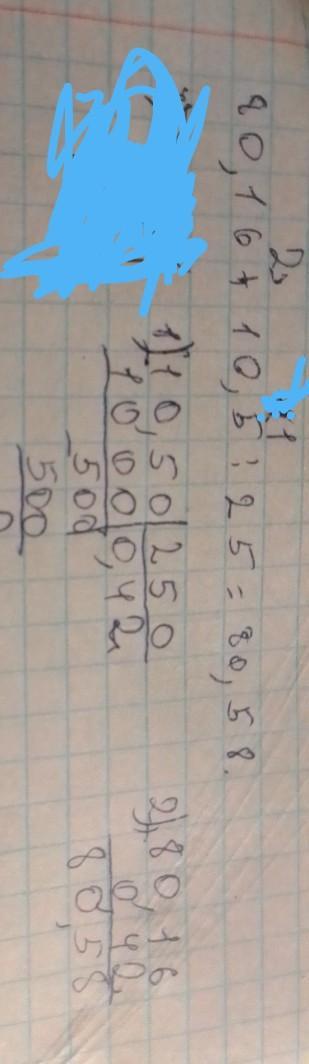 2) 1)
80,16 + 10,5 : 25 = 80,58.
1) 10,50 | 250
1000 | 0,42
500
500
0
2) 80 16
0,42
80,58